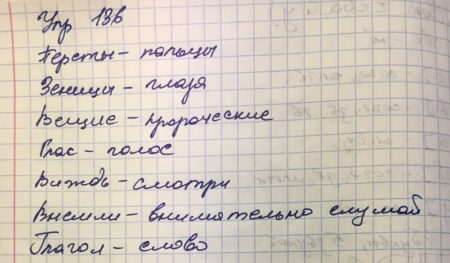 Упр 136
Персты – пальцы
Зеницы – глаза
Вещие – пророческие
Глас – голос
Виждь – смотри
Внемли – внимательно слушай
Глагол – слово